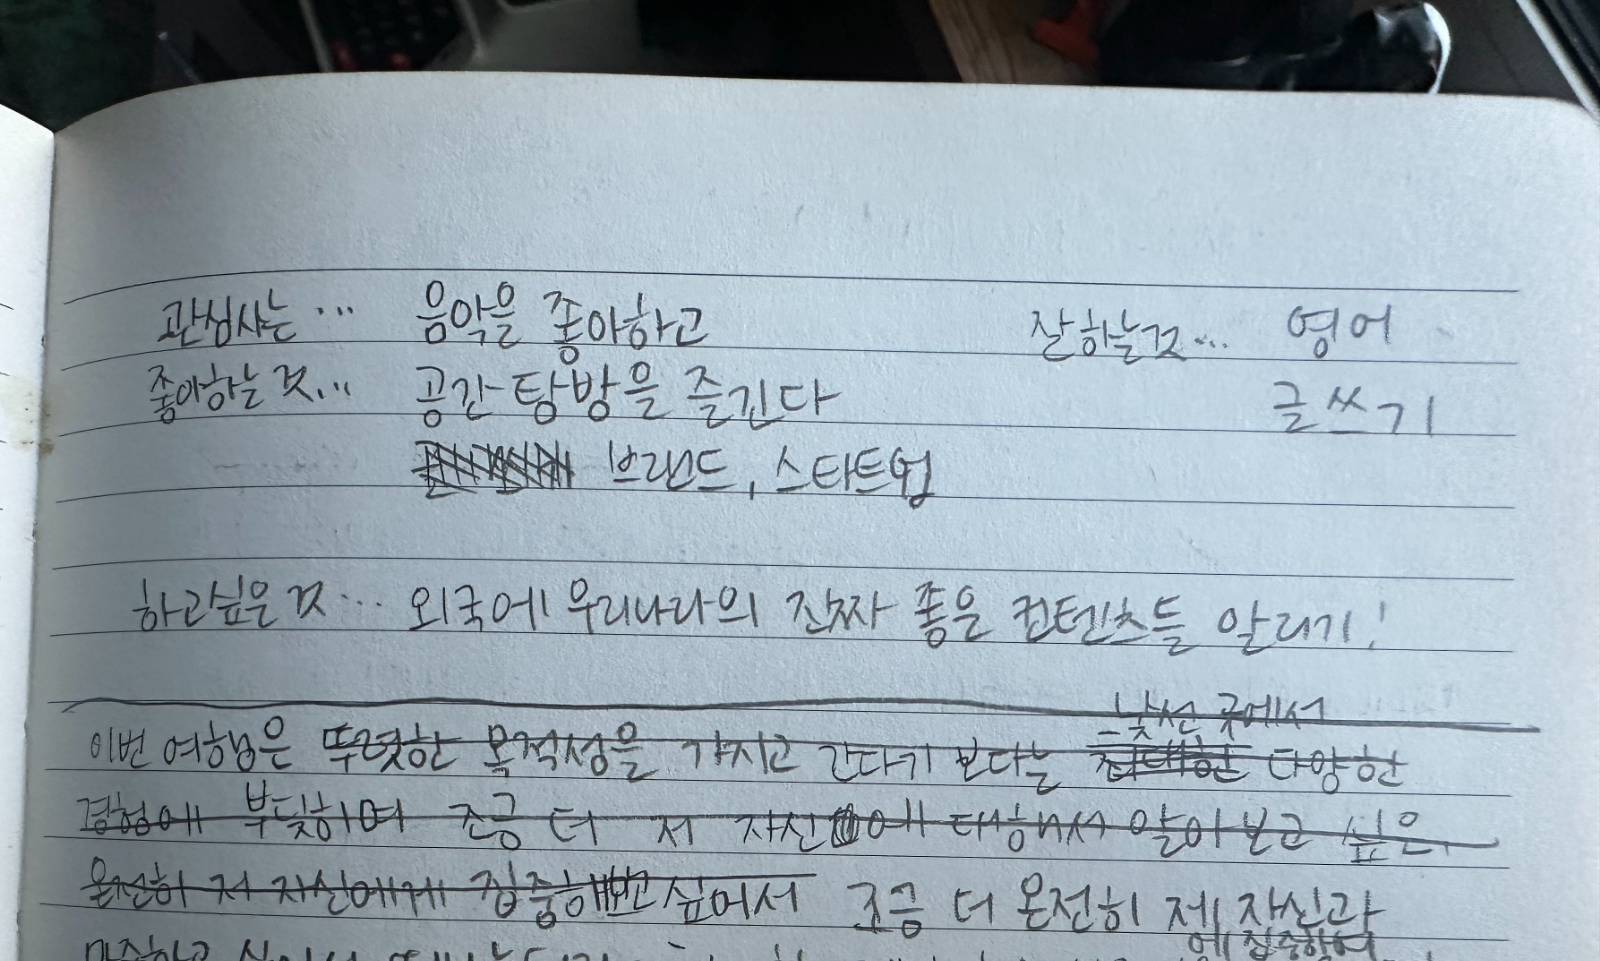 관심사는... 음악을 좋아하고 잘하는것... 영어
좋아하는 것... 공간 탐방을 즐긴다 글쓰기
브랜드, 스타트업
하고싶은 것... 외국에 우리나라의 진짜 좋은 컨텐츠들 알리기!
낯선 곳에서
이번 여행은 뚜렷한 목적성을 가지고 간다기 보다는 다양한
경험에 부딪히며 조금 더 저 자신에 대해서 알아보고 싶은,
온전히 저 자신에게 집중해보고 싶어서 조금 더 온전히 제 자신과
에 집중하여
마주하고 싶어서